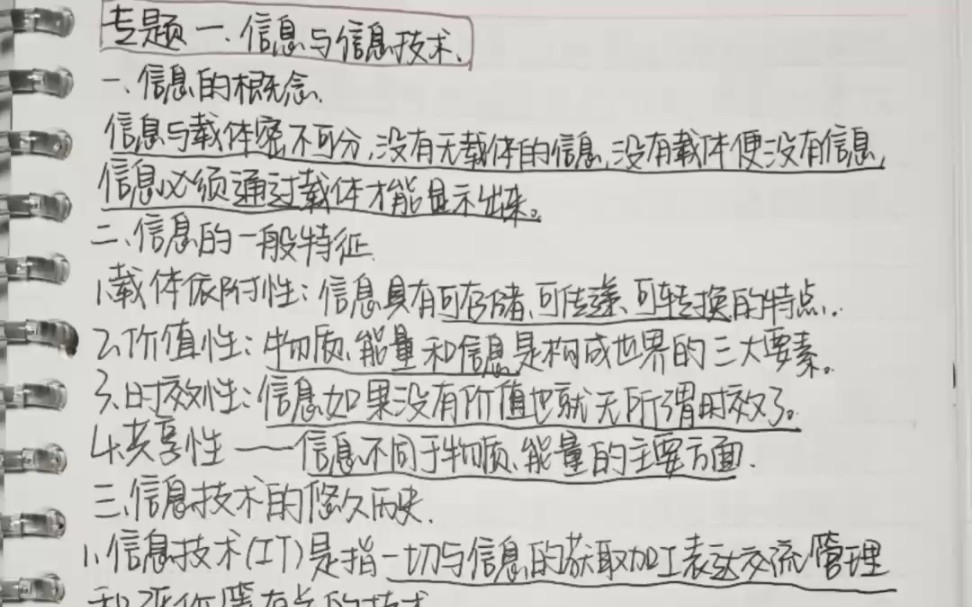 专题一.信息与信息技术.
一.信息的概念.
信息与载体密不可分,没有无载体的信息,没有载体便没有信息,
信息必须通过载体才能显示出来。
二.信息的一般特征.
1.载体依附性:信息具有可存储、可传递、可转换的特点..
2.价值性:物质、能量和信息是构成世界的三大要素。
3.时效性:信息如果没有价值也就无所谓时效了。
4.共享性——信息不同于物质、能量的主要方面.
三.信息技术的悠久历史.
1.信息技术(IT)是指一切与信息的获取加工表达交流管理
和评价等有关的技术